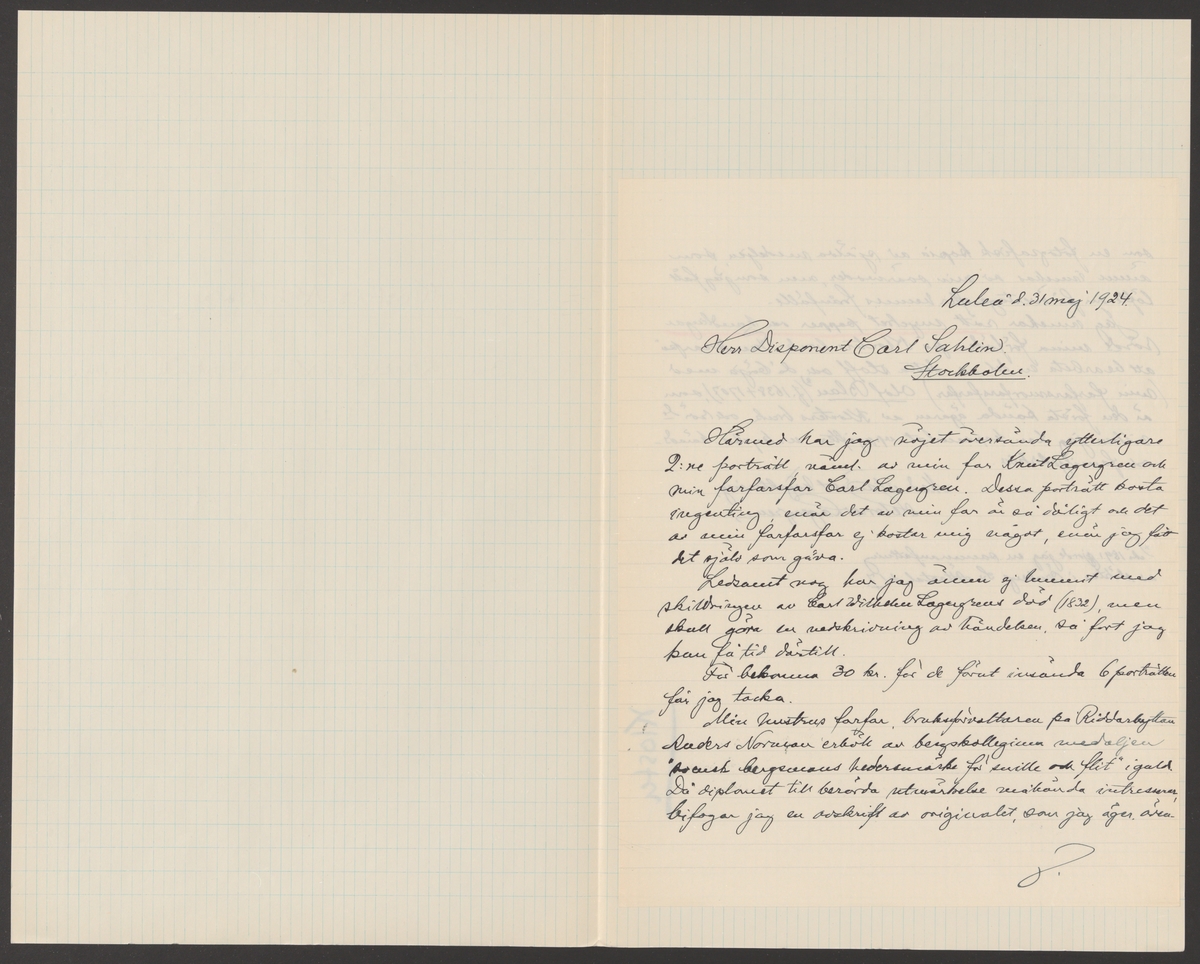 Luleå d. 31 maj 1924.
Herr Disponent Carl Sahlin.
Stockholm.
Härmed har jag nöjet översända ytterligare
2:ne porträtt, näml. av min far Knut Lagergren och
min farfarsfar Carl Lagergren. Dessa porträtt kosta
ingenting, enär det av min far är så dåligt och det
av min farfarsfar ej kostar mig något, enär jag fått
det själv som gåva.
Ledsamt nog har jag ännu ej hunnit med
skildringen av Carl Wilhelm Lagergrens död (1832), men
skall göra en nedskrivning av händelsen, så fort jag
kan få tid därtill.
För bekomna 30 kr. för de förut insända 6 porträtten
får jag tacka.
Min hustrus farfar, bruksförvaltaren på Riddarhyttan
Anders Norman erhöll av bergskollegium medaljen
"svensk bergsmans hedersmärke för snille och flit" i guld.
Då diplomet till berörda utmärkelse måhända intresserar,
bifogar jag en avskrift av originalet, som jag äger, även-